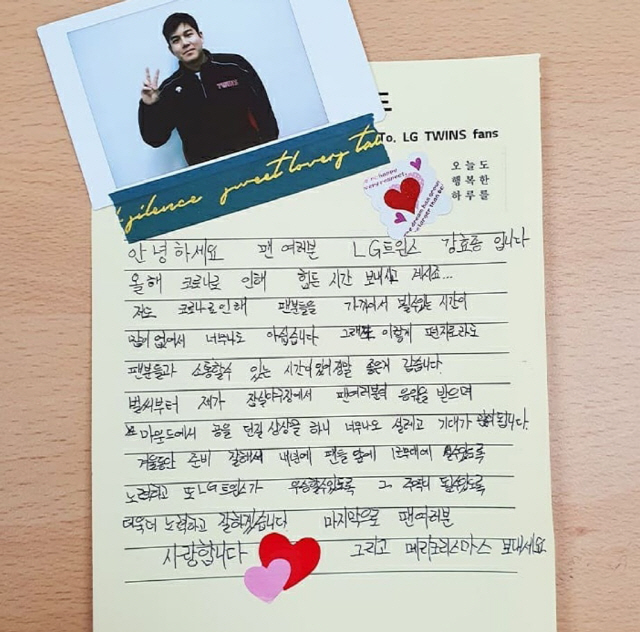 TWINS
To. LG TWINS fans
silence sweet lovery
오늘도
행복한
하루를
안녕하세요 팬 여러분 LG트윈스 강효종 입니다
올해 코로나로 인해 힘든 시간 보내시고 계시죠...
저도 코로나로인해 팬분들을 가까이서 뵐수있는 시간이
많이 없어서 너무나도 아쉽습니다 그래도 이렇게 편지로라도
팬분들과 소통할수 있는 시간이 있어 정말 좋은거 같습니다
벌써부터 제가 잠실야구장에서 팬여러분의 응원을 받으며
마운드에서 공을 던질 상상을 하니 너무나도 설레고 기대가 됩니다
겨울동안 준비 잘해서 내년에 팬들 앞에 1군무대에 설수있도록
노력하고 또 LG트윈스가 우승할수있도록 그 주역이 될수있도록
더욱더 노력하고 잘하겠습니다 마지막으로 팬여러분
사랑합니다 그리고 메리크리스마스 보내세요